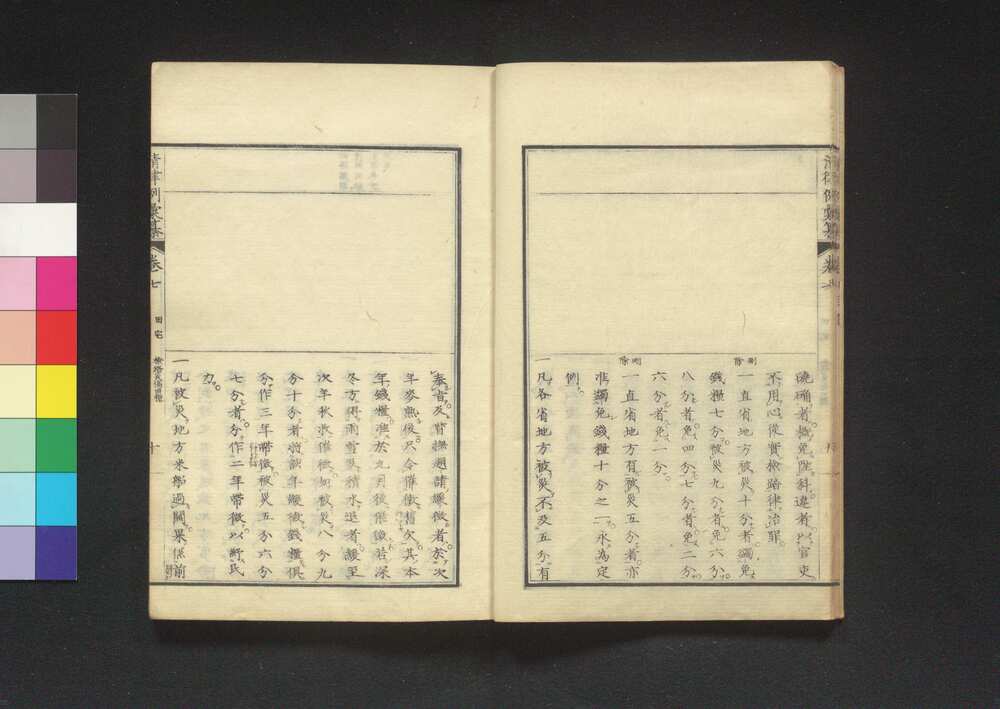 清律例彙纂
卷七
磽确者概免陞科違者以官吏
不用心從實檢踏律治罪
刪除
一直省地方被災十分者蠲免
錢糧七分被災九分者免六分
八分者免四分七分者免二分
六分者免一分
刪除
一直省地方有被災五分者亦
准蠲免錢糧十分之一永為定
例
一凡各省地方被災不及五分有
奉旨及督撫題請緩徵者於次
年麥熟後尺令催徵舊欠其本
年錢糧准於九月後催徵若深
冬方得雨雪及積水退者緩至
次年秋收催徵如被災八分九
分十分者將該年緩徵錢糧俱
分作三年帶徵被災五分六分
七分者分作二年帶徵以紓民
力
一凡被災地方米船過關果係前
清律例彙纂
卷七
田宅
檢踏災傷田糧
十